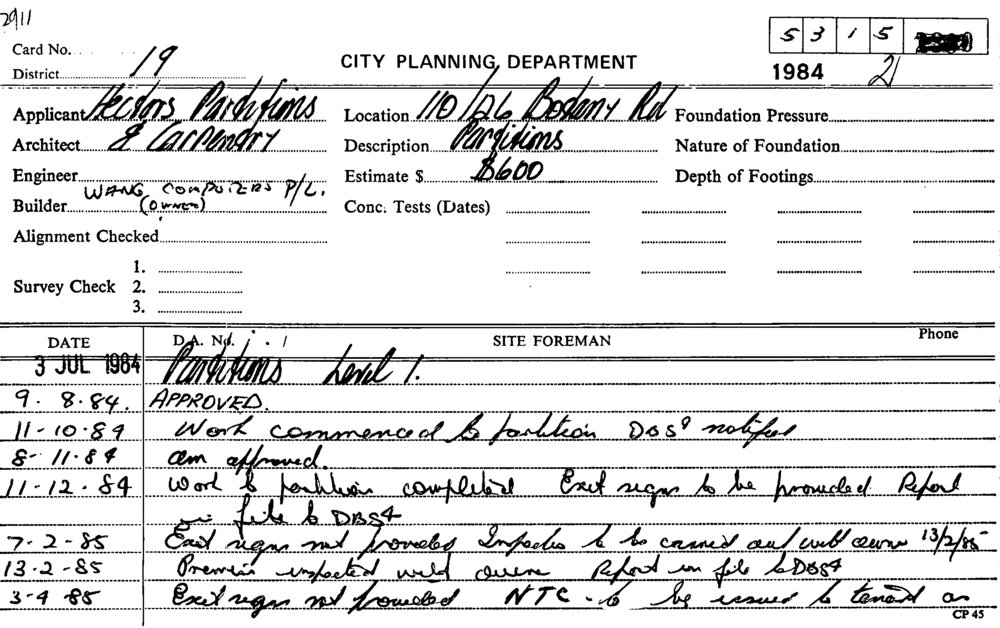 2911
5 3 1 5
Card No.
District 19
CITY PLANNING DEPARTMENT
1984 21
Applicant Hectors Partitions
Location 110/126 Botany Rd
Foundation Pressure
Architect & Carpentry
Description Partitions
Nature of Foundation
Engineer
Estimate $ $600
Depth of Footings
WANG COMPUTERS P/L.
Builder (OWNER)
Conc. Tests (Dates)
Alignment Checked
1.
Survey Check 2.
3.
DATE D.A. No. SITE FOREMAN Phone
3 JUL 1984 Partitions Level 1.
9. 8.84. APPROVED.
11-10-84 Work commenced to partition DBS4 notified
8-11-84 am approved.
11-12-84 Work to partition completed Exit signs to be provided Report
on file to DBS4
7-2-85 Exit signs not provided Inspection to be carried out with owner 13/2/85
13-2-85 Premises inspected with owner Report on file to DBS4
3-4 85 Exit signs not provided NTC - to be issued to tenant as
CP 45